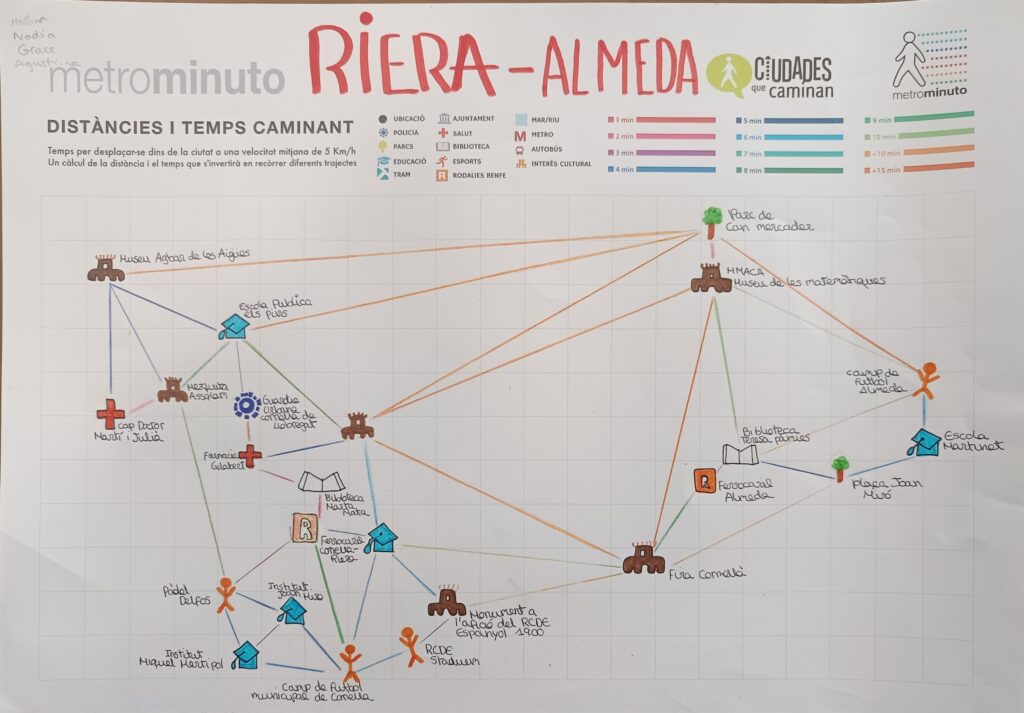 Nadia
Grace
Agustina
metrominuto
RIERA - ALMEDA
CiUDADES
que caminan
metrominuto
DISTÀNCIES I TEMPS CAMINANT
Temps per desplaçar-se dins de la ciutat a una velocitat mitjana de 5 Km/h
Un càlcul de la distància i el temps que s'invertirà en recòrrer diferents trajectes
UBICACIÓ
POLICIA
PARCS
EDUCACIÓ
TRAM
AJUNTAMENT
SALUT
BIBLIOTECA
ESPORTS
RODALIES RENFE
MAR/RIU
METRO
AUTOBÚS
INTERÈS CULTURAL
1 min
2 min
3 min
4 min
5 min
6 min
7 min
8 min
9 min
10 min
+10 min
+15 min
Parc de
Can mercader
Museu Agbar de les Aigües
MMACA
Museu de les matemàtiques
Escola Publica
els pins
Mezquita
Assalam
Guardia
Urbana
cornella de
llobregat
cap Doctor
Martí i Julià
camp de
Futbol
Almeda
Farmacia
Gelabert
Biblioteca
Teresa pàmies
Escola
Martinet
Biblioteca
Marta
Mata
Ferrocaril
Almeda
plaça Joan
Miró
Ferrocaril
cornella-
Riera
Fira Cornellà
Pàdel
Delfos
Institut
Joan Miro
Monument a
l'afició del RCDE
Espanyol 1900
RCDE
Stadium
Institut
Miquel Martí pol
Camp de Futbol
municipal de Conella